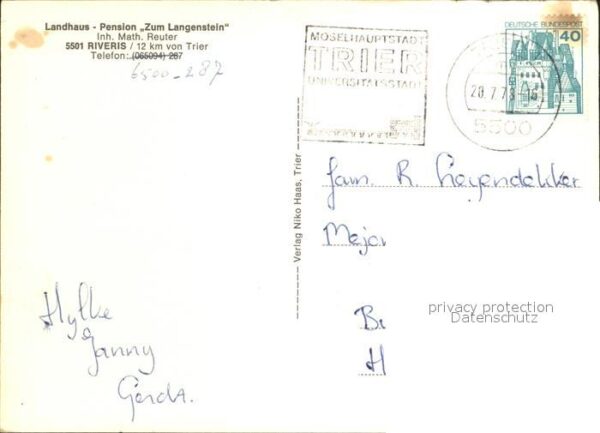 Landhaus - Pension „Zum Langenstein"
Inh. Math. Reuter
5501 RIVERIS / 12 km von Trier
Telefon: (065094) 287
6500-287
MOSELHAUPTSTADT
TRIER
UNIVERSITÄTSSTADT
DEUTSCHE BUNDESPOST
40
5500
Verlag Niko Haas, Trier
Fam. R.
Major
Br
H
privacy protection
Datenschutz
Hylke
Janny
Gerda.